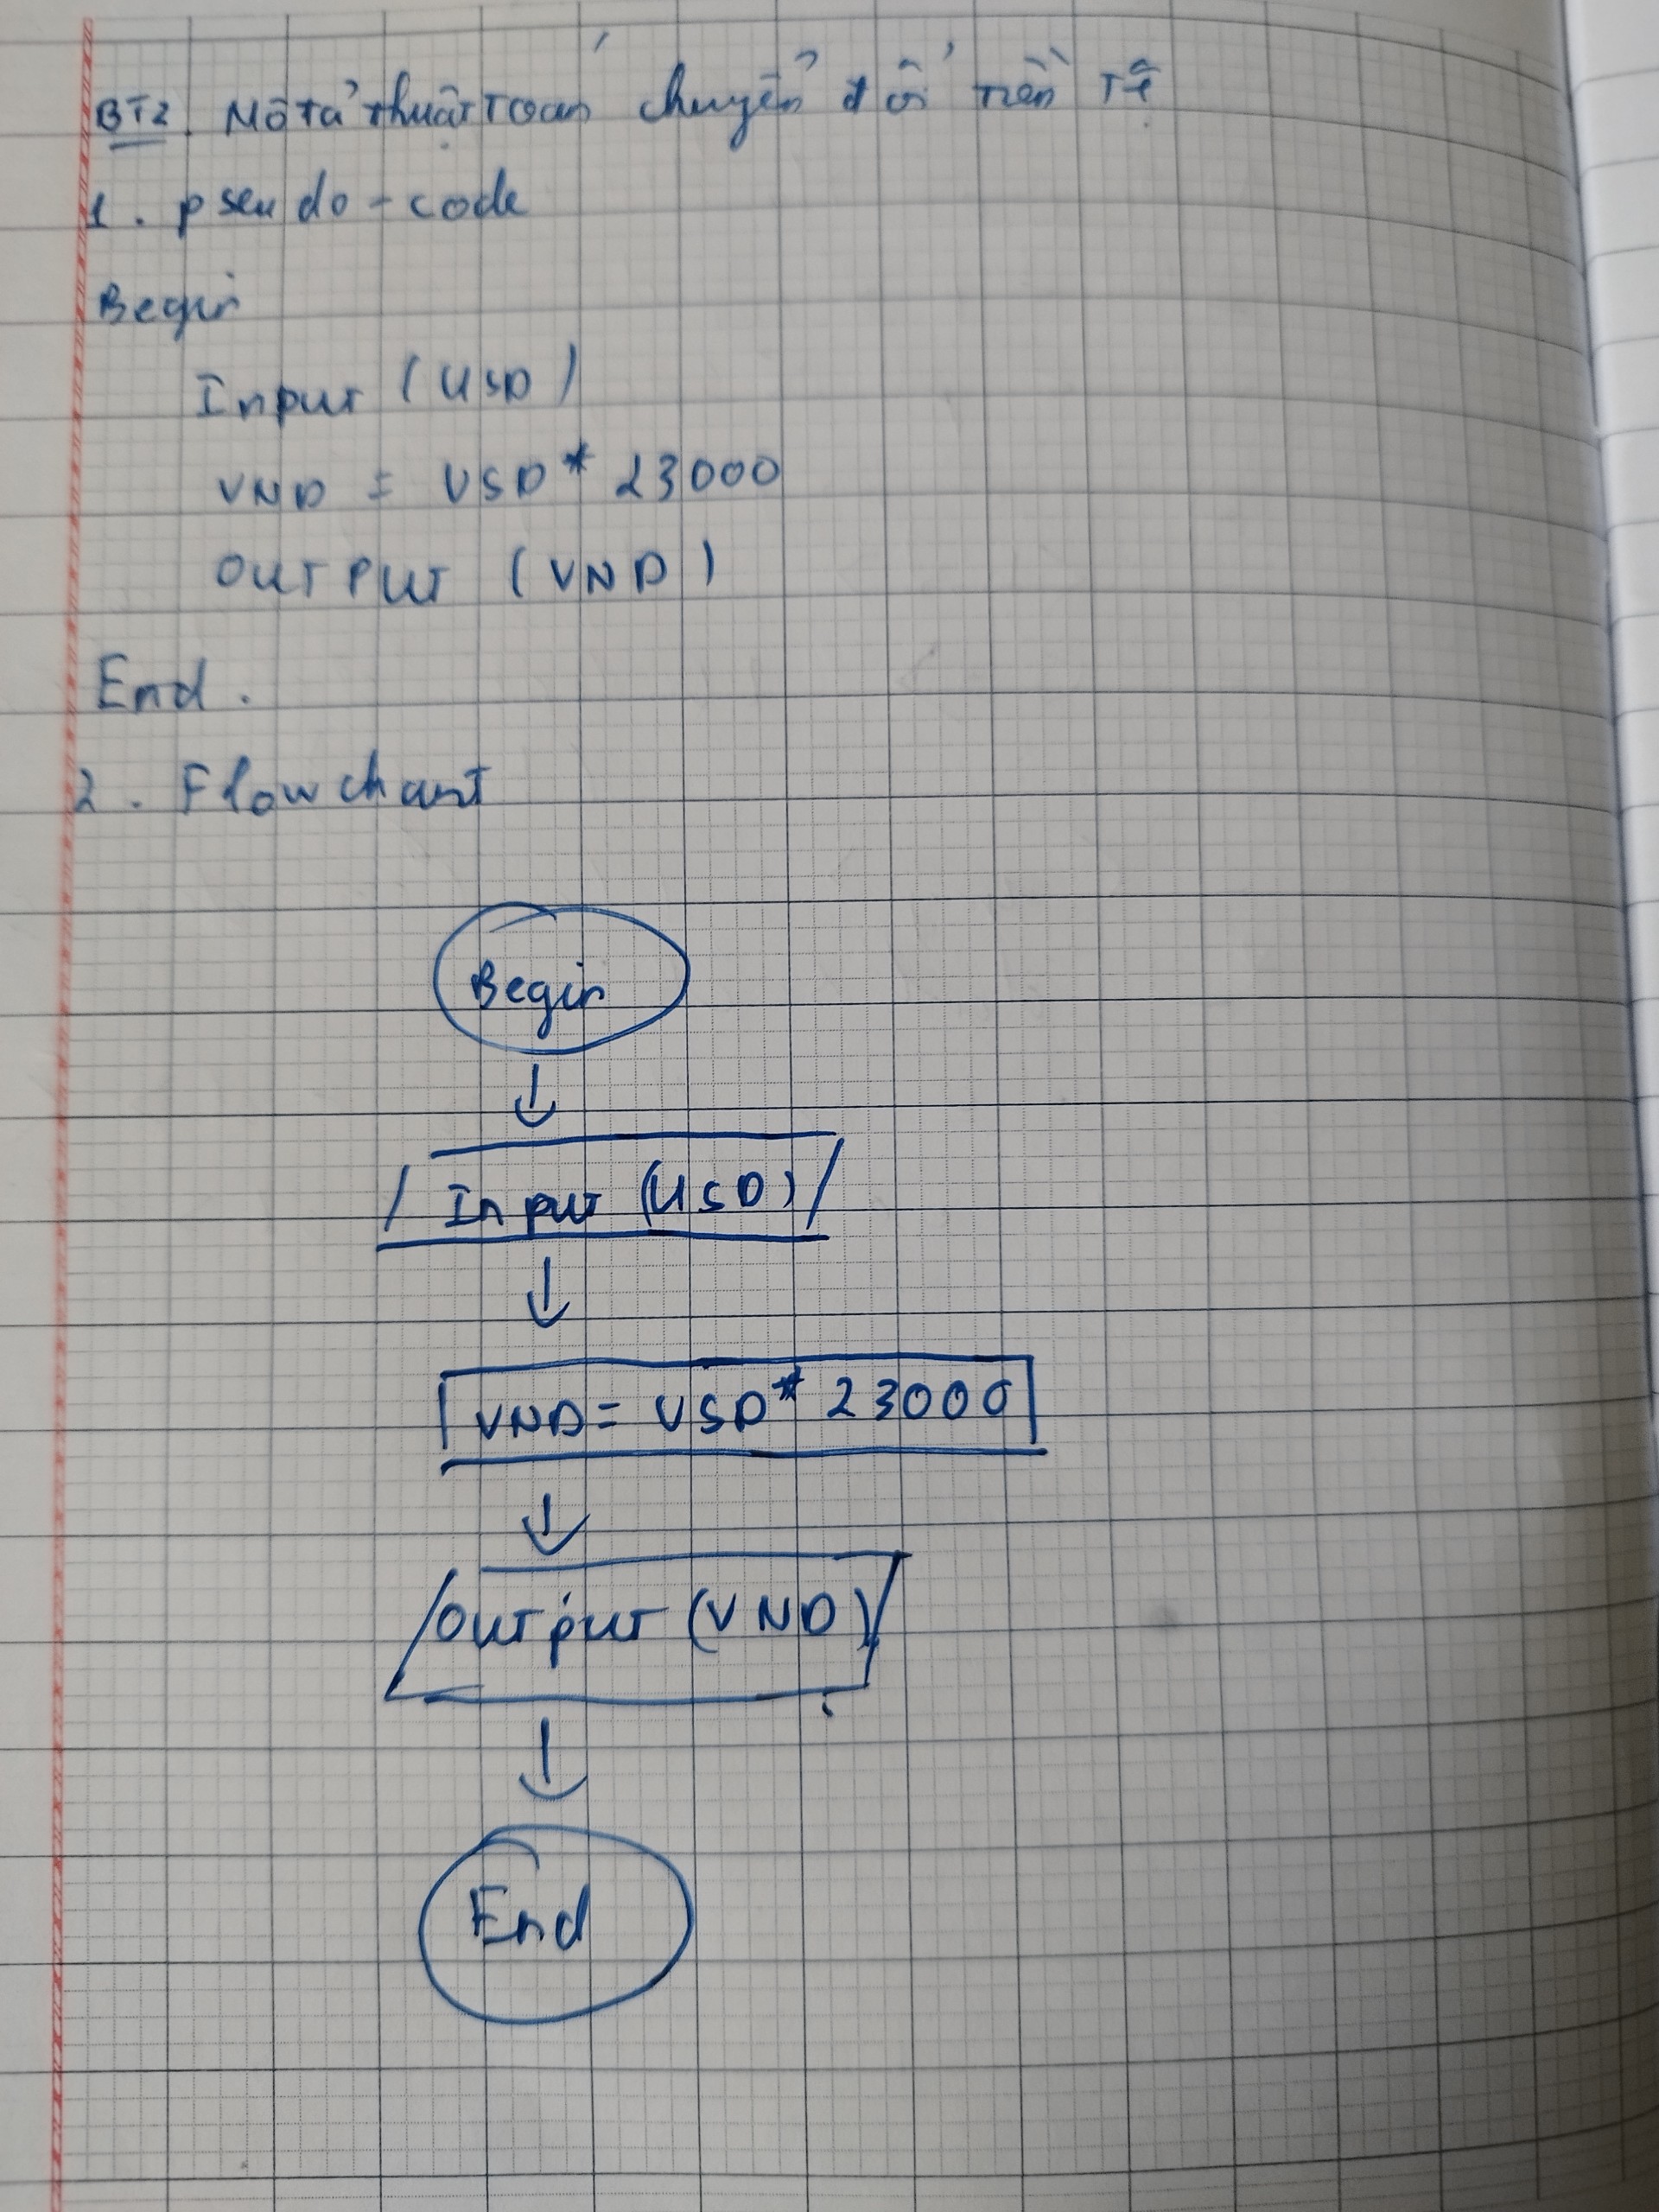 BT2. Mô tả thuật toán chuyển đổi tiền tệ
1. pseudo-code
Begin
Input (USD)
VND = USD * 23000
OUTPUT (VND)
End.
2. Flowchart
Begin
Input (USD)
VND = USD * 23000
Output (VND)
End